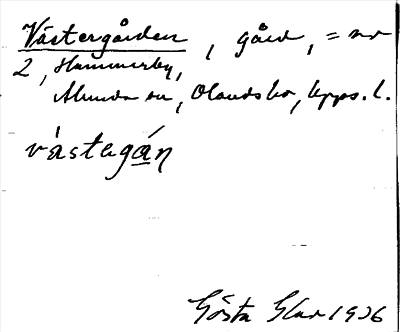 Västergården, gård, = nr
2, Hammerby,
Almunda sn, Olandsbo, Upps. l.
västegán
Gösta Glar 1936